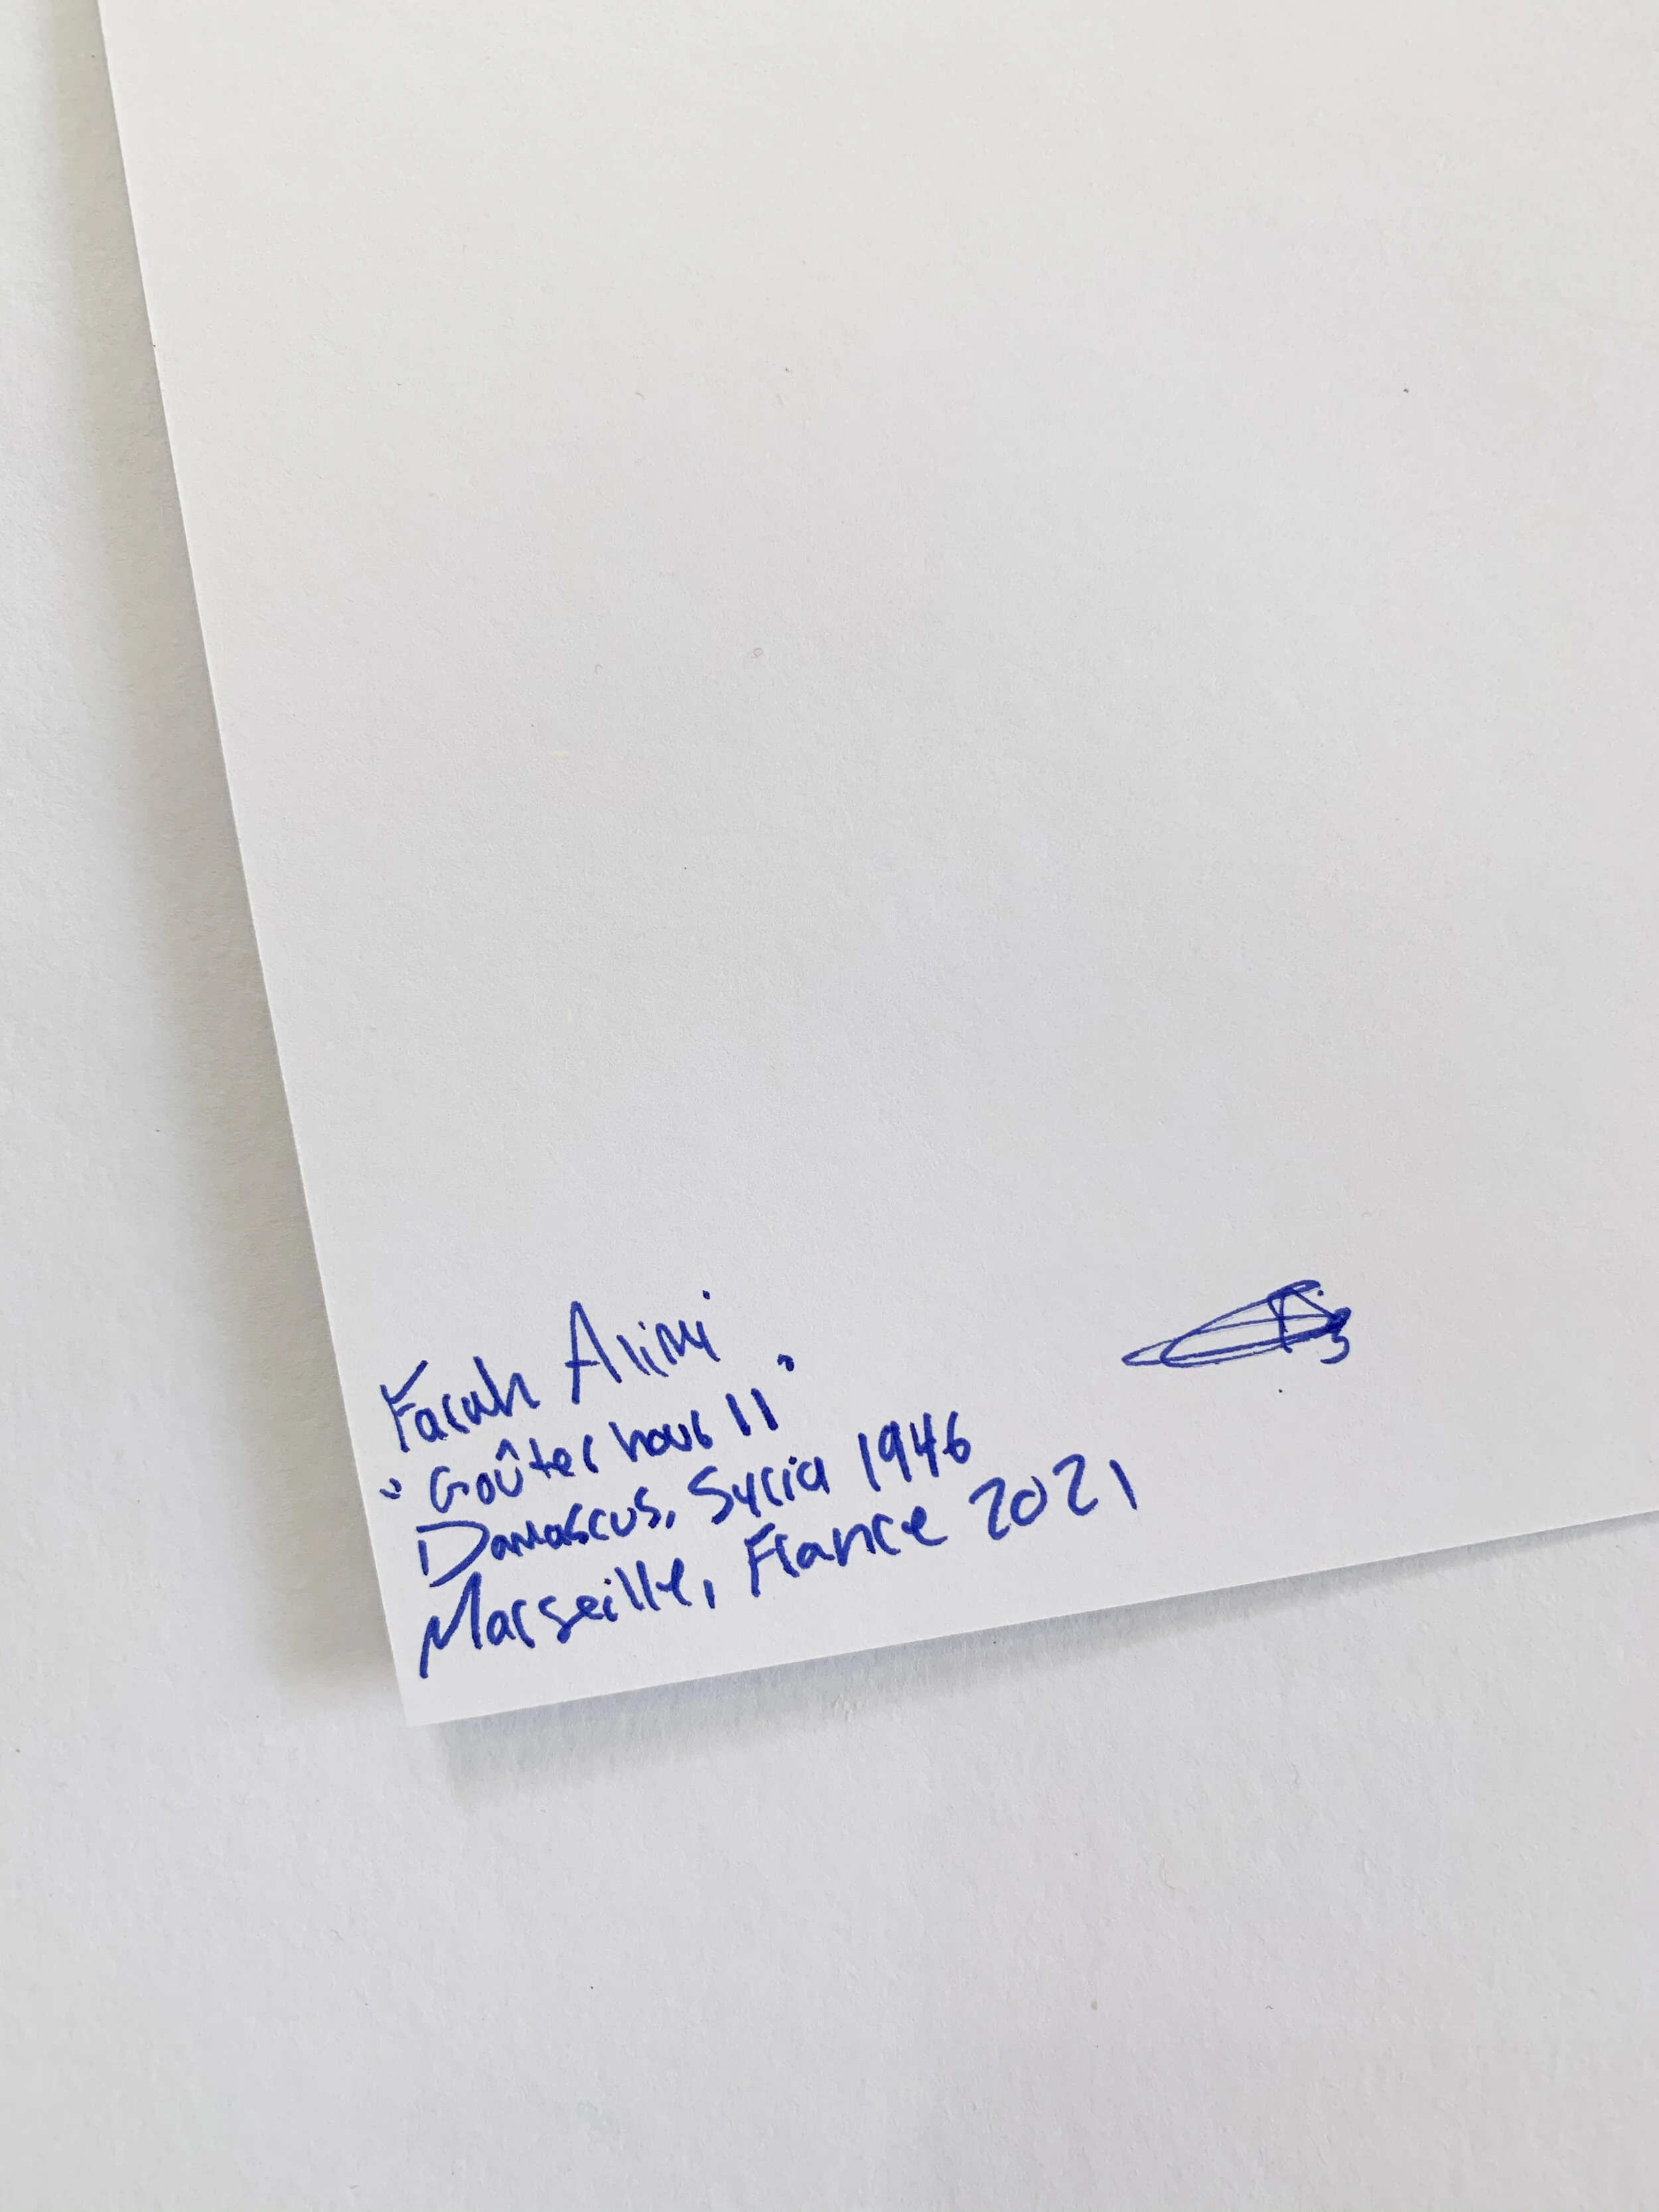 Farah Alimi
"Goûter hour II"
Damascus, Syria 1946
Marseille, France 2021